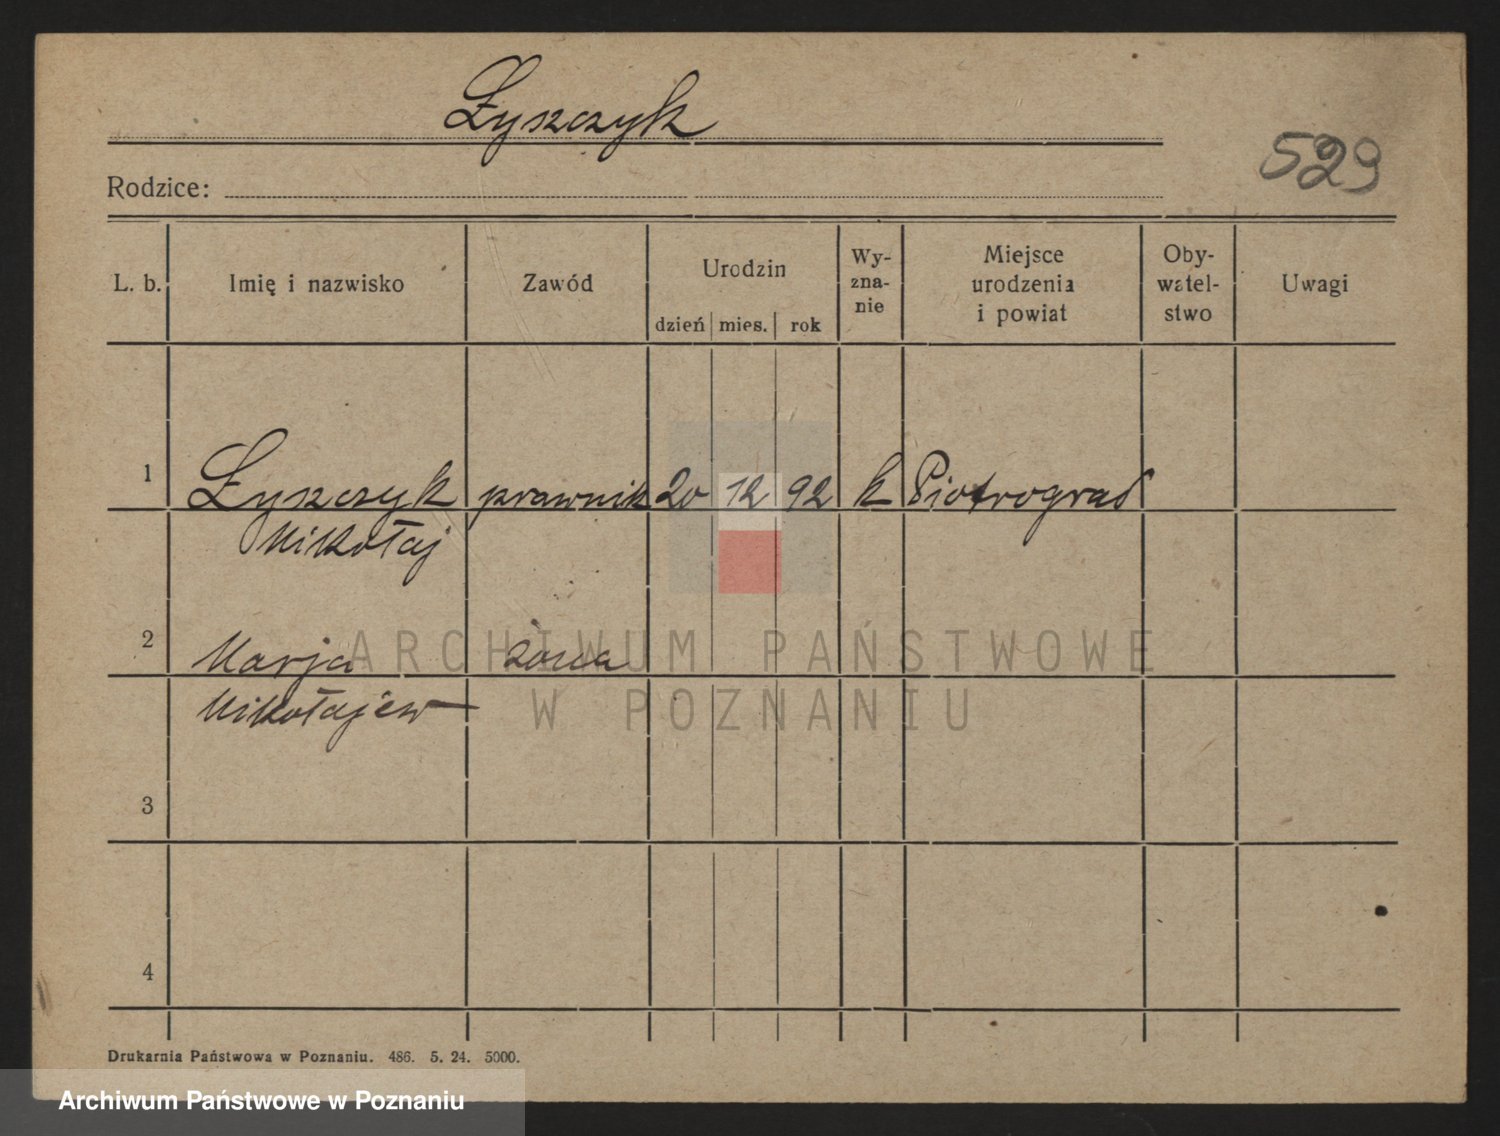 Łyszczyk
529
Rodzice:
L. b. Imię i nazwisko Zawód Urodzin dzień mies. rok Wy-zna-nie Miejsce urodzenia i powiat Oby-watel-stwo Uwagi
1 Łyszczyk prawnik 20 12 92 k Piotrograd
Mikołaj
2 Marja żona
Mikołajew
3
4
ARCHIWUM PAŃSTWOWE
W POZNANIU
Drukarnia Państwowa w Poznaniu. 486. 5. 24. 5000.
Archiwum Państwowe w Poznaniu